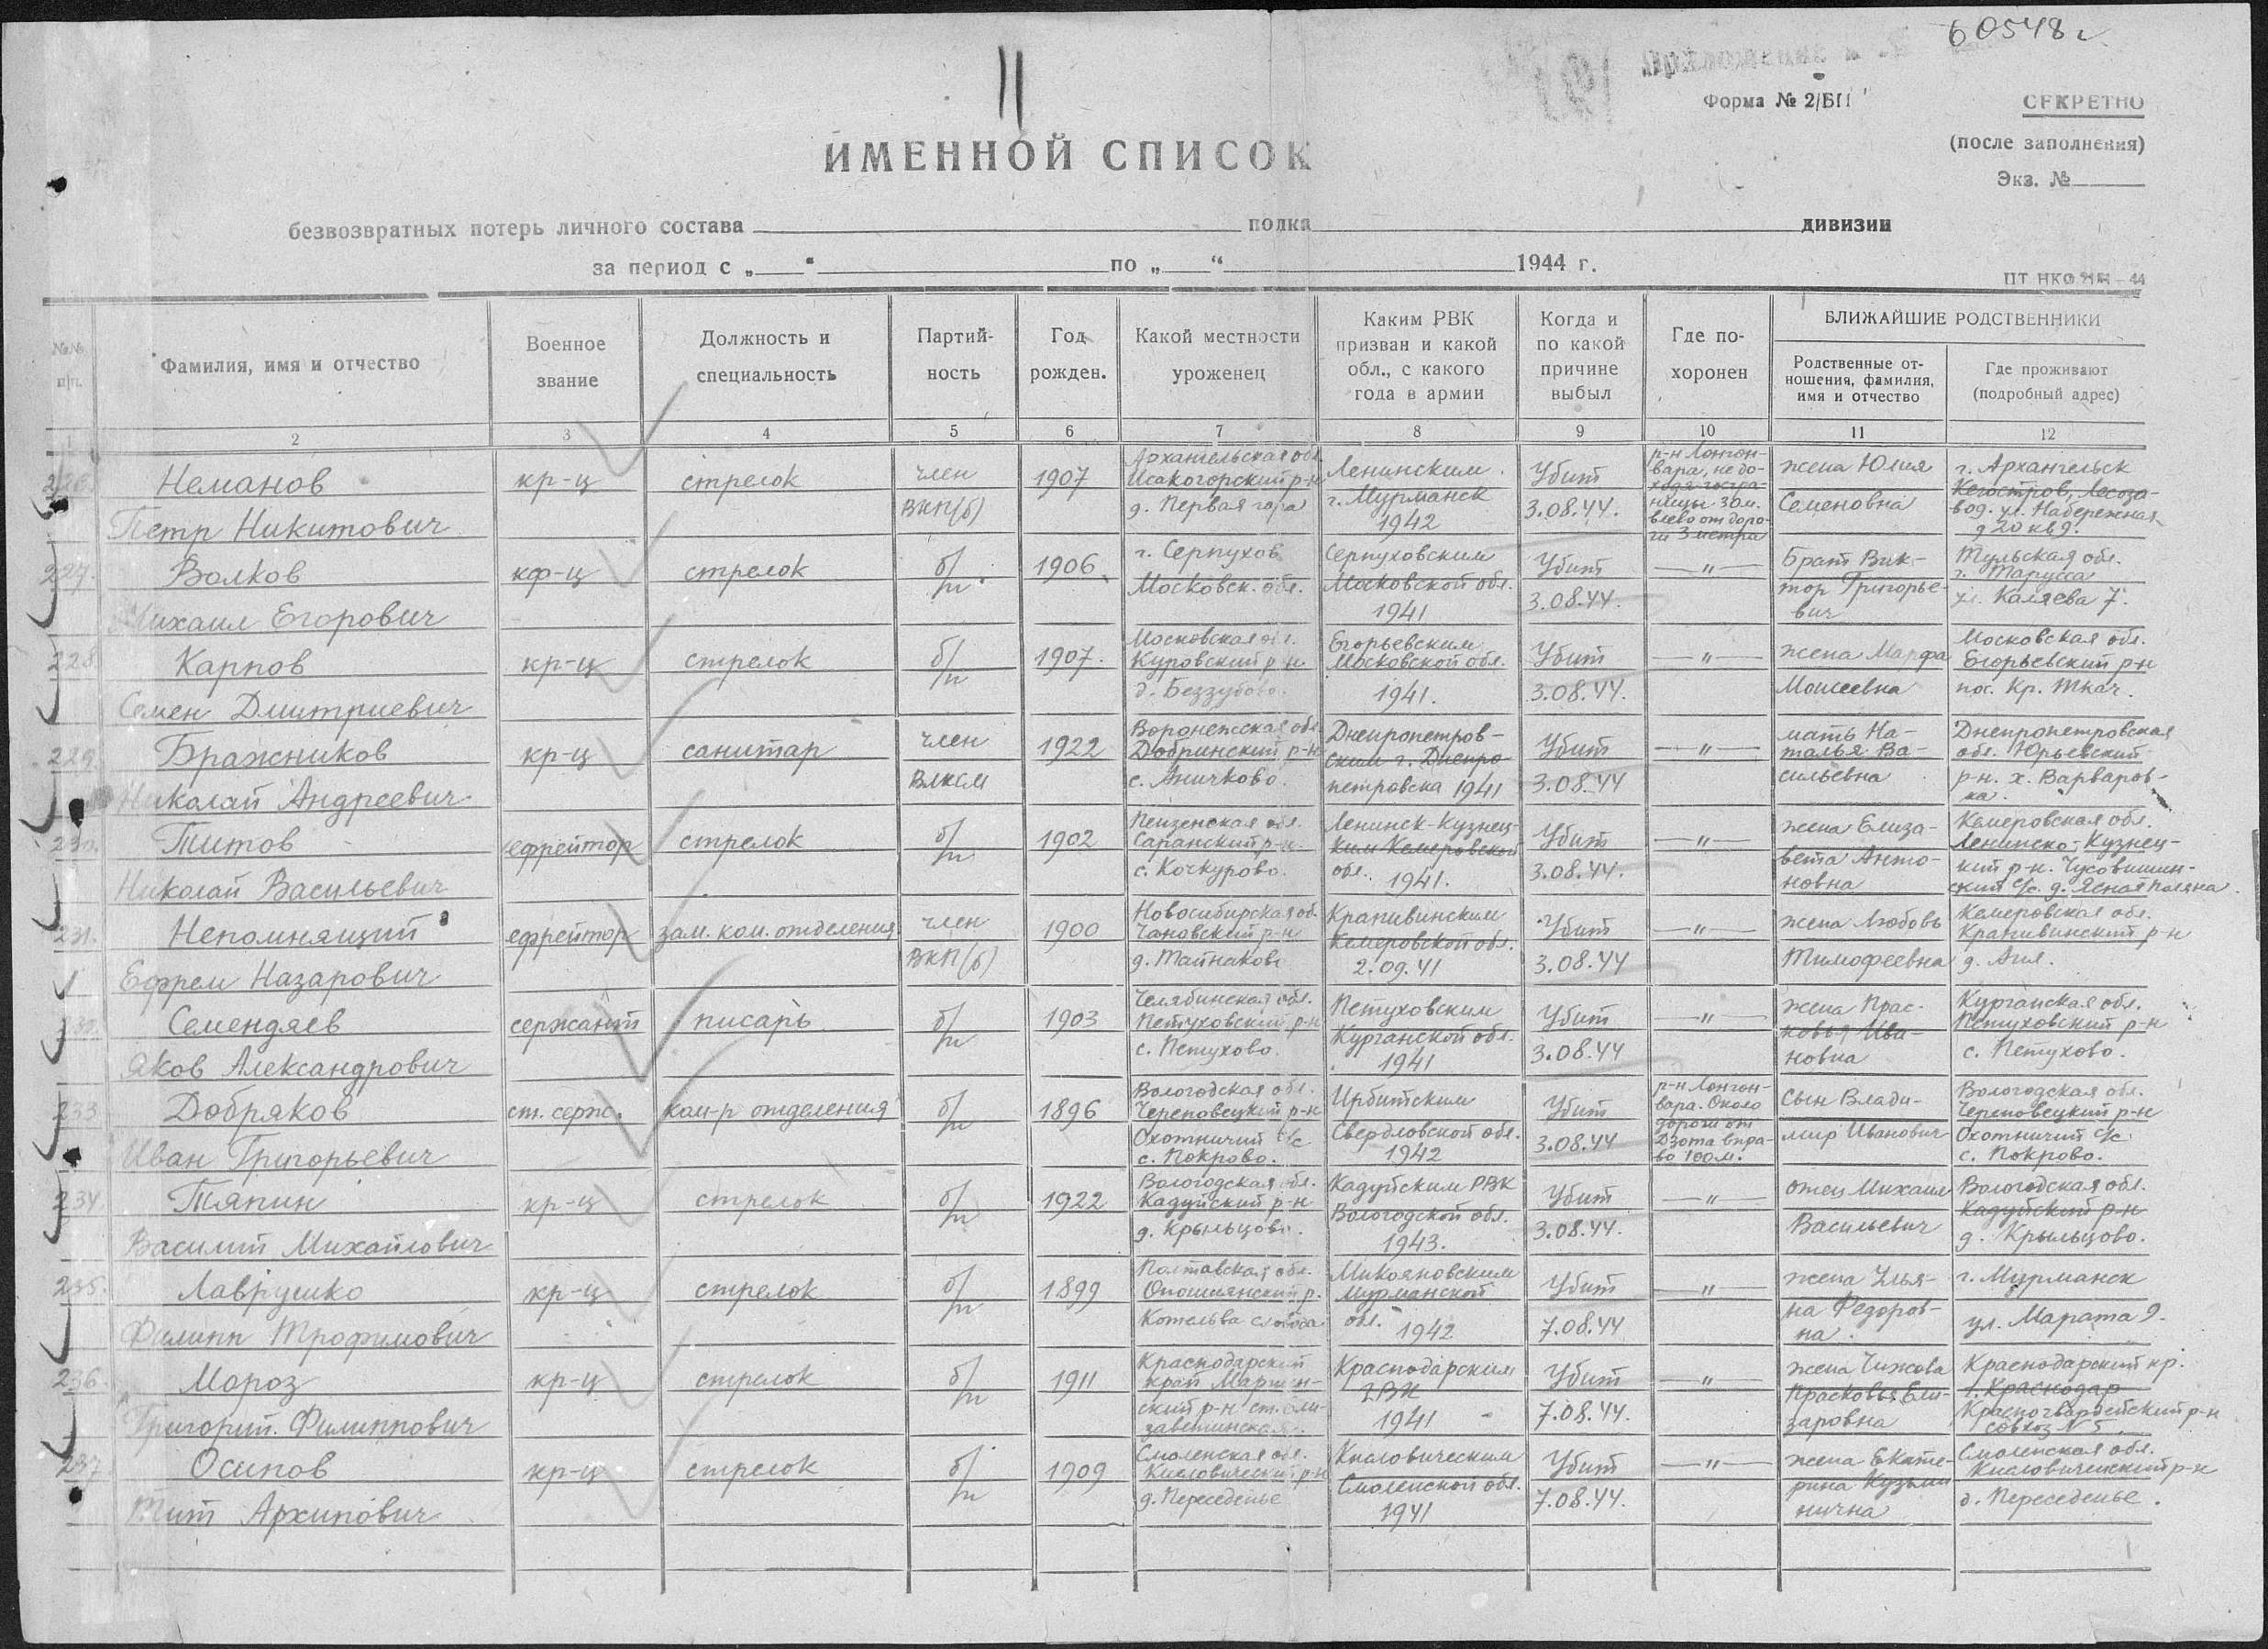 60548с
11
Форма № 2/БП
СЕКРЕТНО
(после заполнения)
Экз. №
ИМЕННОЙ СПИСОК
безвозвратных потерь личного состава полка дивизии
за период с „ “ по „ “ 1944 г.
№№ п/п.
Фамилия, имя и отчество
Военное звание
Должность и специальность
Партий-ность
Год рожден.
Какой местности уроженец
Каким РВК призван и какой обл., с какого года в армии
Когда и по какой причине выбыл
Где по-хоронен
БЛИЖАЙШИЕ РОДСТВЕННИКИ
Родственные от-ношения, фамилия, имя и отчество
Где проживают (подробный адрес)
1 2 3 4 5 6 7 8 9 10 11 12
226. Неманов Петр Никитович кр-ц стрелок член ВКП(б) 1907 Архангельская обл. Исакогорский р-н д. Первая гора Ленинским г. Мурманск 1942 Убит 3.08.44. р-н Лонгон-вара, не до-ходя госгра-ницы 30 м. влево от доро-ги 3 метра жена Юлия Семеновна г. Архангельск Кегостров, Лесоза-вод. ул. Набережная д 20 кв 9.
227. Волков Михаил Егорович кф-ц стрелок б/п 1906 г. Серпухов Московск. обл. Серпуховским Московской обл. 1941 Убит 3.08.44. —„— Брат Вик-тор Григорье-вич Тульская обл. г. Тарусса ул. Каляева 7.
228. Карпов Семен Дмитриевич кр-ц стрелок б/п 1907. Московская обл. Куровский р-н д. Беззубово. Егорьевским Московской обл. 1941. Убит 3.08.44. —„— жена Марфа Моисеевна Московская обл. Егорьевский р-н пос. Кр. Ткач.
229. Бражников Николай Андреевич кр-ц санитар член ВЛКСМ 1922 Воронежская обл. Добринский р-н с. Аничково. Днепропетров-ским г. Днепро петровска 1941 Убит 3.08.44 —„— мать На-талья Ва-сильевна Днепропетровская обл. Юрьевский р-н. х. Варваров-ка.
230. Титов Николай Васильевич ефрейтор стрелок б/п 1902 Пензенская обл. Саранский р-н. с. Кочкурово. Ленинск-Кузнец-ким Кемеровской обл. 1941. Убит 3.08.44. —„— жена Елиза-вета Анто-новна Кемеровская обл. Ленинско-Кузнец-кий р-н. с/с. д. Ясная Поляна.
231. Непомнящий Ефрем Назарович ефрейтор зам. ком. отделения член ВКП(б) 1900 Новосибирская об. Чановский р-н д. Крапивинским Кемеровской обл. 2.09.41 Убит 3.08.44 —„— жена Любовь Тимофеевна Кемеровская обл. Крапивинский р-н д.
232. Семендяев Яков Александрович сержант писарь б/п 1903 Челябинская обл. Петуховский р-н с. Петухово. Петуховским Курганской обл. 1941 Убит 3.08.44 —„— жена Прас-ковья Ива-новна Курганская обл. Петуховский р-н с. Петухово.
233 Добряков Иван Григорьевич ст. серж. ком-р отделения б/п 1896 Вологодская обл. Череповецкий р-н Охотничий с/с с. Покрово. Ирбитским Свердловской обл. 1942 Убит 3.08.44 р-н Лонгон-вара. Около дороги от Дзота впра-во 100 м. Сын Влади-мир Иванович Вологодская обл. Череповецкий р-н Охотничий с/с с. Покрово.
234. Тяпин Василий Михайлович кр-ц стрелок б/п 1922 Вологодская обл. Кадуйский р-н д. Крыльцово. Кадуйским РВК Вологодской обл. 1943. Убит 3.08.44. —„— отец Михаил Васильевич Вологодская обл. Кадуйский р-н д. Крыльцово.
235. Лаврушко Филипп Трофимович кр-ц стрелок б/п 1899 Полтавская обл. Опошнянский р. Котельва слобода. Микояновским Мурманской обл. 1942 Убит 7.08.44 —„— жена Улья-на Федоров-на. г. Мурманск ул. Марата 9.
236. Мороз Григорий Филиппович кр-ц стрелок б/п 1911 Краснодарский край ский р-н ст. Ели-заветинская. Краснодарским ГВК 1941 Убит 7.08.44. —„— жена Чижова Прасковья Ели-заровна Краснодарский кр. г. Краснодар Красногвардейский р-н совхоз № 5.
237 Осипов Тит Архипович кр-ц стрелок б/п 1909 Смоленская обл. р-н д. Переседенье Смоленской обл. 1941 Убит 7.08.44. —„— жена Екате-рина Кузьми нична Смоленская обл. р-н д. Переседенье.